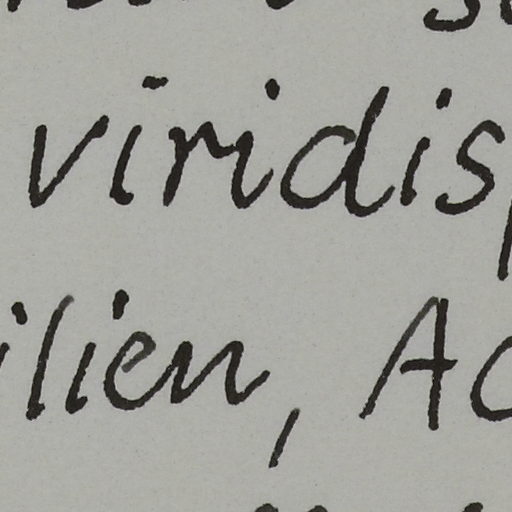 viridis
ilien, Ac